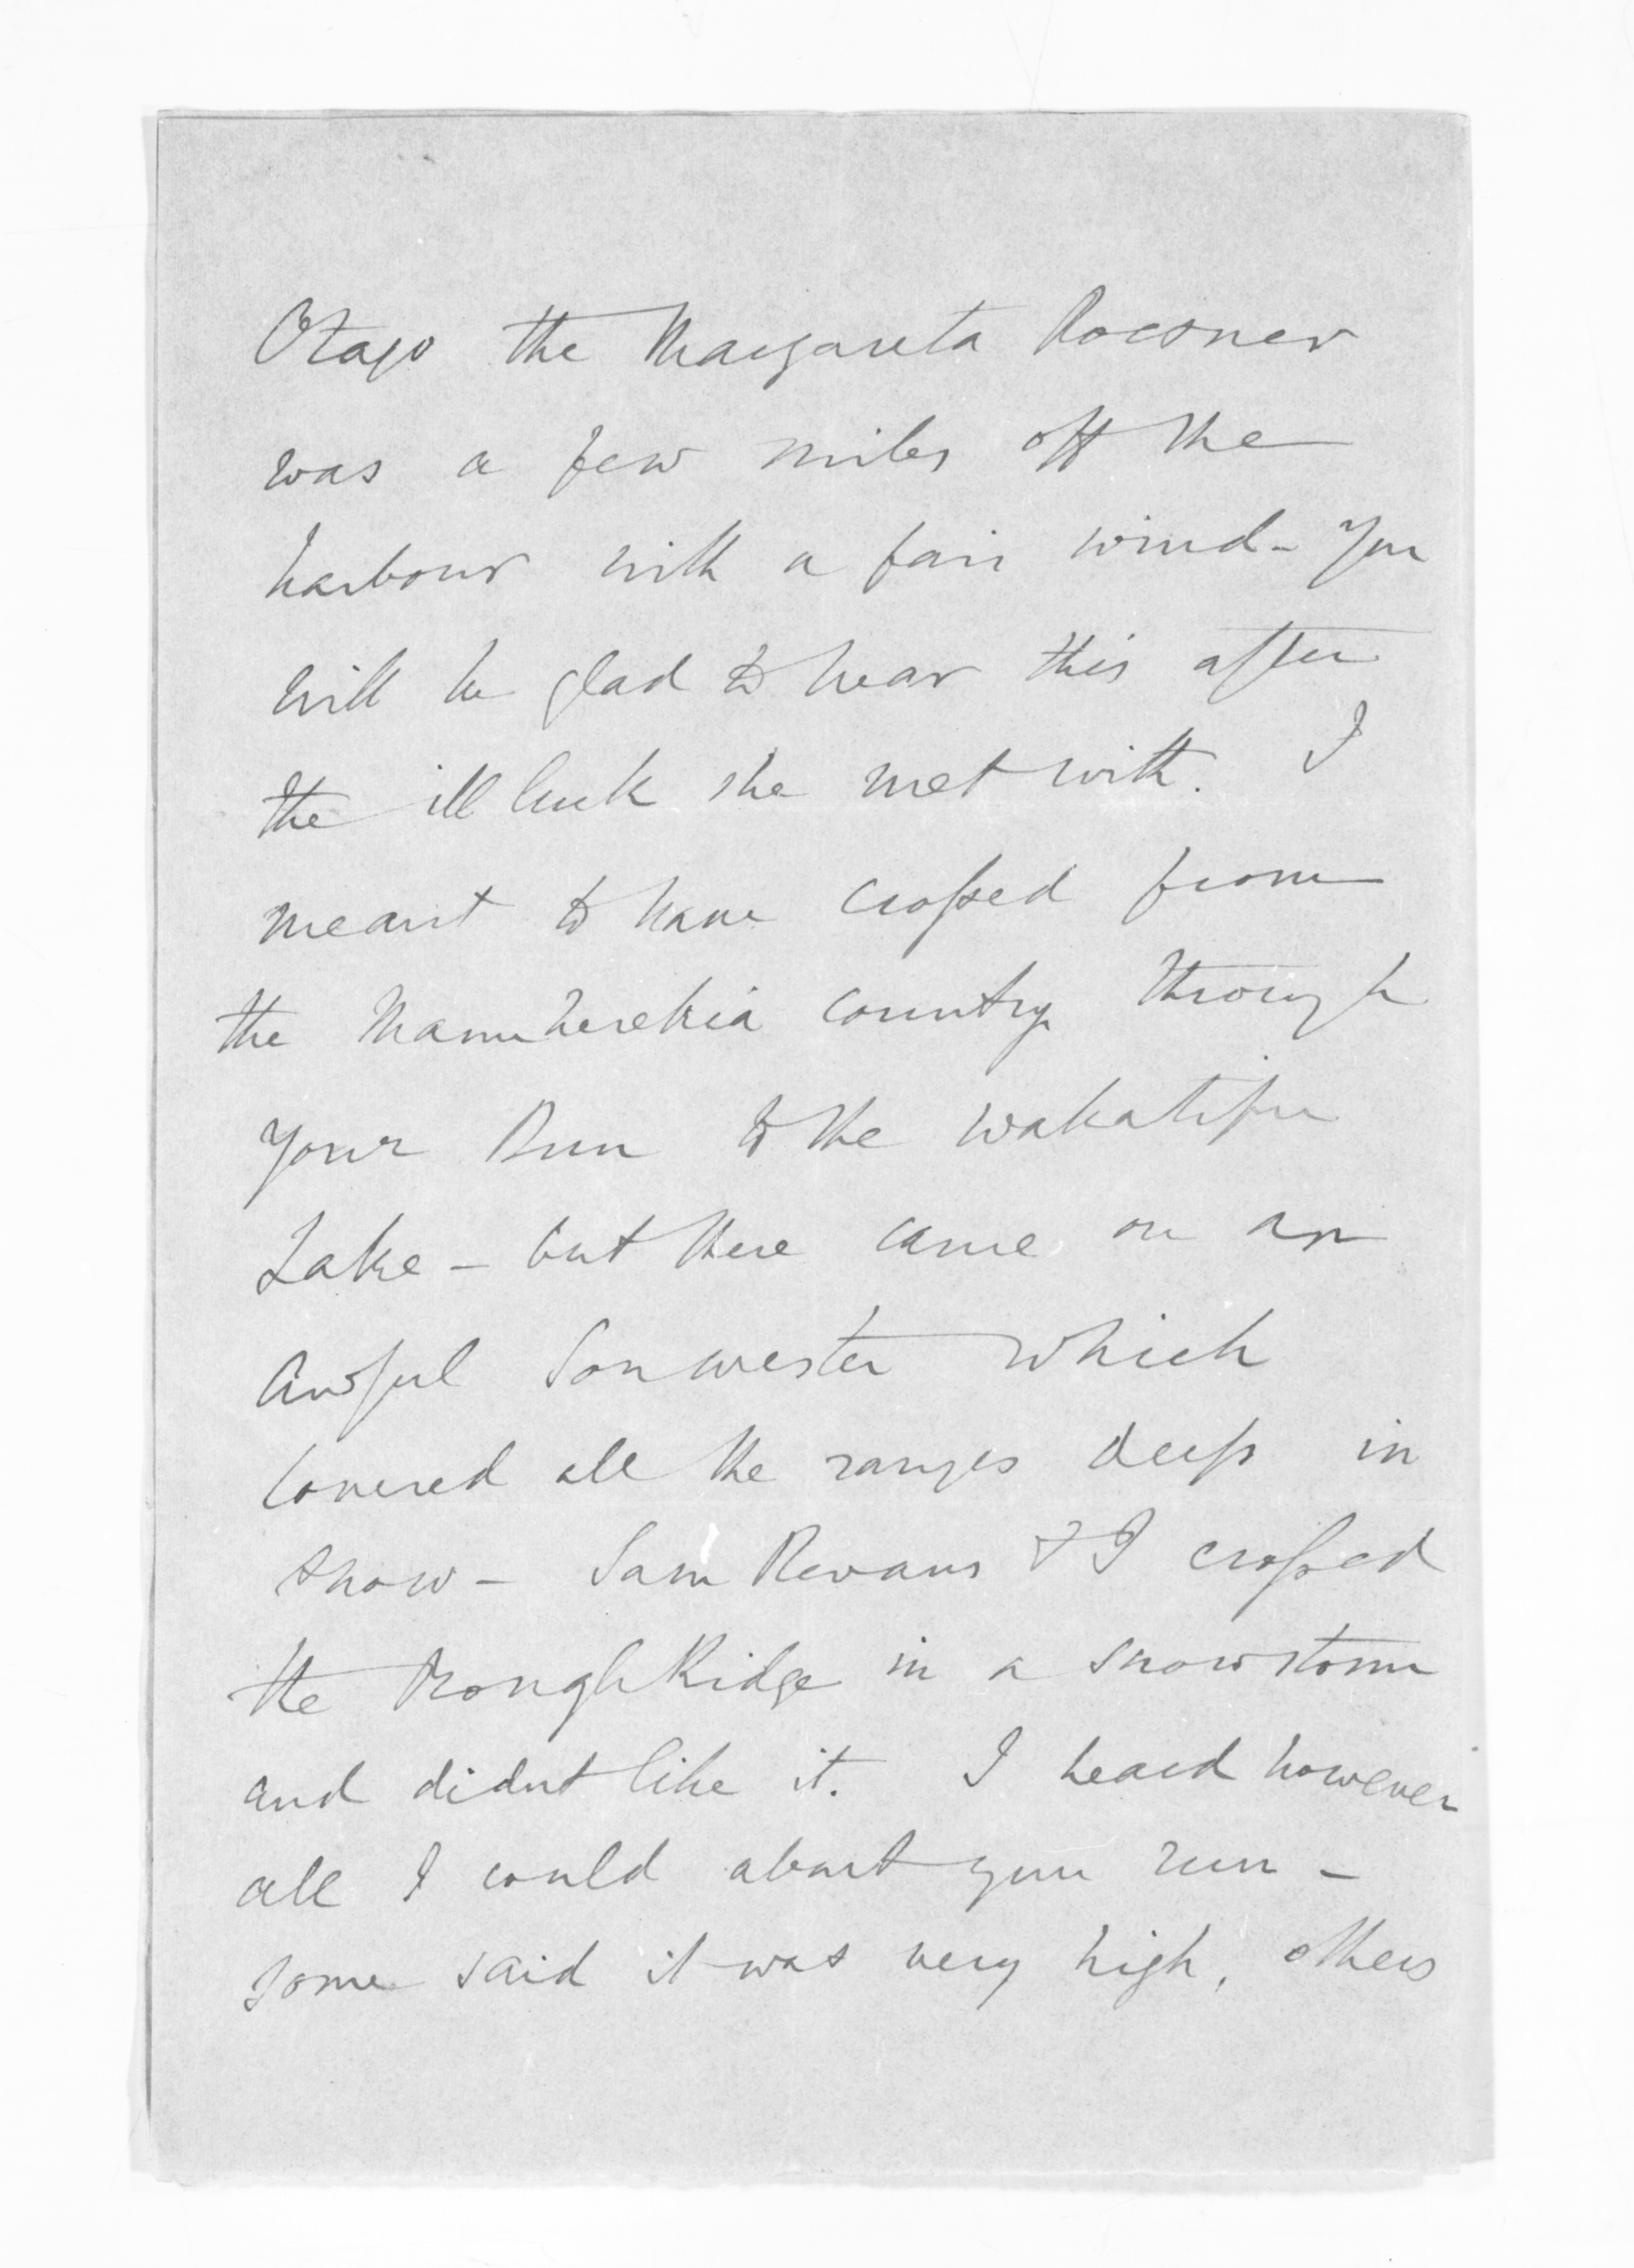 Otago the Margareta Roesner
was a few miles off the
harbour with a fair wind - you
will be glad to hear this after
the ill luck she met with. I
meant to have crossed from
the Manuherekia country through
your Run to the Wakatipu
Lake - but there came on an
awful Sou wester which
covered all the ranges deep in
snow - Sam Revans & I crossed
the Rough Ridge in a snowstorm
and didnt like it. I heard however
all I could about your run -
some said it was very high, others